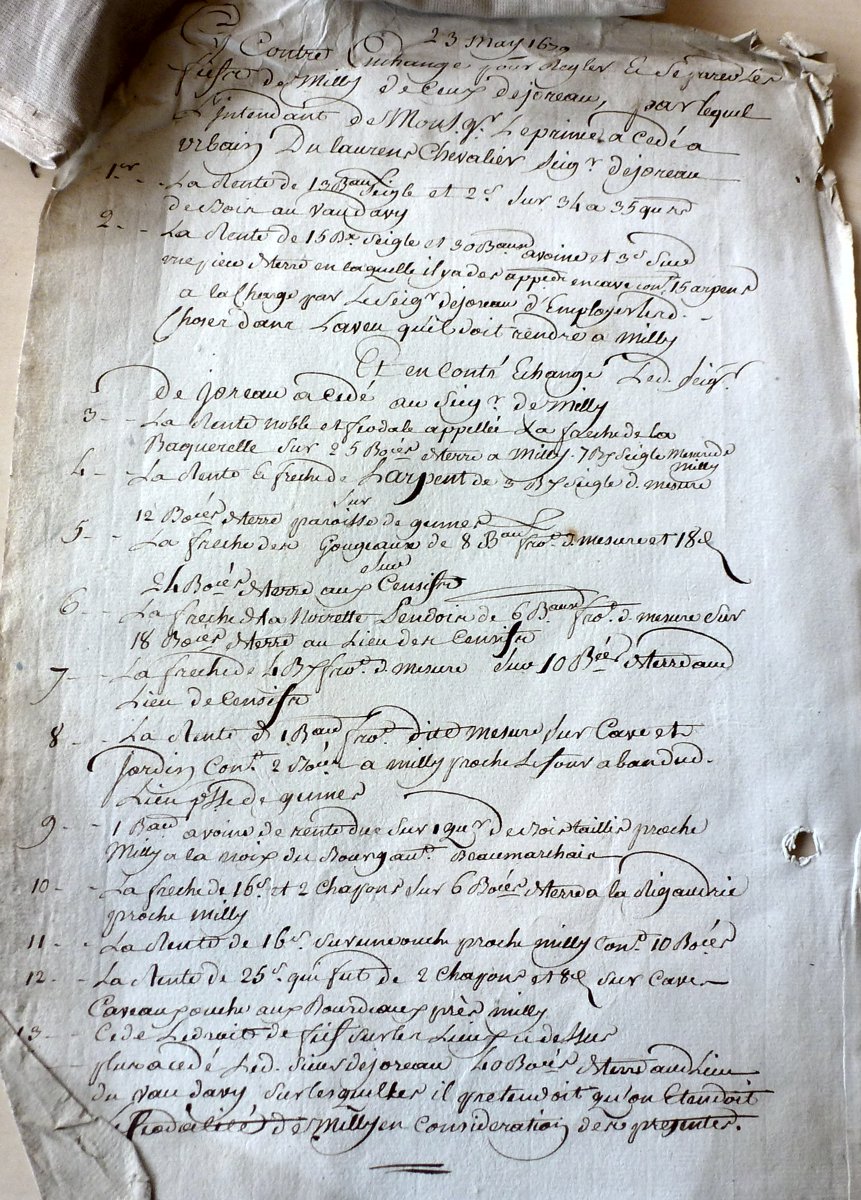 23 may 16
Contre Echange pour Regler & Séparer Les
fiefs de Milly de Ceux dejoreau, par lequel
L'Intendant de Mons.gr Le prince a cedé a
Urbain Du laurens Chevalier Seig.r dejoreau
1.er - La Rente de 13 B.aux Seigle et 2.s Sur 34 a 35 qu.rs
de Bois au Vaudavy
2. - La Rente de 15 B.x Seigle et 30 B.aux avoine et 3.s Sur
une piece de terre en laquelle il y a des encave con.t 15 arpens
a la Charge par Le Seig.r dejoreau d'Employer Lesd. -
Choses dans Laveu quil doit rendre a Milly
Et en contr' Echange Led. Seig.r
De joreau a Cedé au Seig.r de Milly
3 - La Rente noble et feodale appellée La freche de la
Baquerelle Sur 25 Boiés de terre a Milly. 7 B.x Seigle Mesure de Milly
4 - La Rente & freche de Larpent de 3 B.x Seigle d. mesure
sur
12 Boiées de terre paroisse de
5 - La freche des Gougeaux de 8 B.aux fro.t d. mesure et 18 d
Sur
24 Boiés de terre aux Censifs
6 - La freche de la Noirette Lendoir de 6 B.aux fro.t d. mesure Sur
18 Boiés de terre au Lieu des Censifs
7 - La freche de 4 B.x fro.t d. mesure Sur 10 B.ées de terre aud
Lieu de Censifs
8 - La Rente d 1 B.au fro.t dite mesure, Sur Cave et
Jardin Con.t 2 Boiés a Milly proche Le four a ban dud.
Lieu p.sse de
9 - 1 B.au avoine de rente due Sur 1 qu.r de Bois taillis proche
Milly a la noix du Beaumarchais
10 - La freche de 16.s et 2 Chapons Sur 6 Boiés de terre a la Rigaudrie
proche Milly
11 - La Rente de 16.s Sur une ouche proche Milly Con.t 10 Boiés
12 - La Rente de 25.s qui fut de 2 Chapons et 8 d Sur Caves
Caveaux ouche aux Bourdeaux près Milly
13 - Cede Le droit de fief Sur les Lieux ci dessus
plus a cedé Led. Sieur dejoreau 40 Boiés de terre au Lieu
du Vaudavy Sur lesquelles il pretendoit qu'on Etendoit
feodalité de Milly en Consideration des presentes.